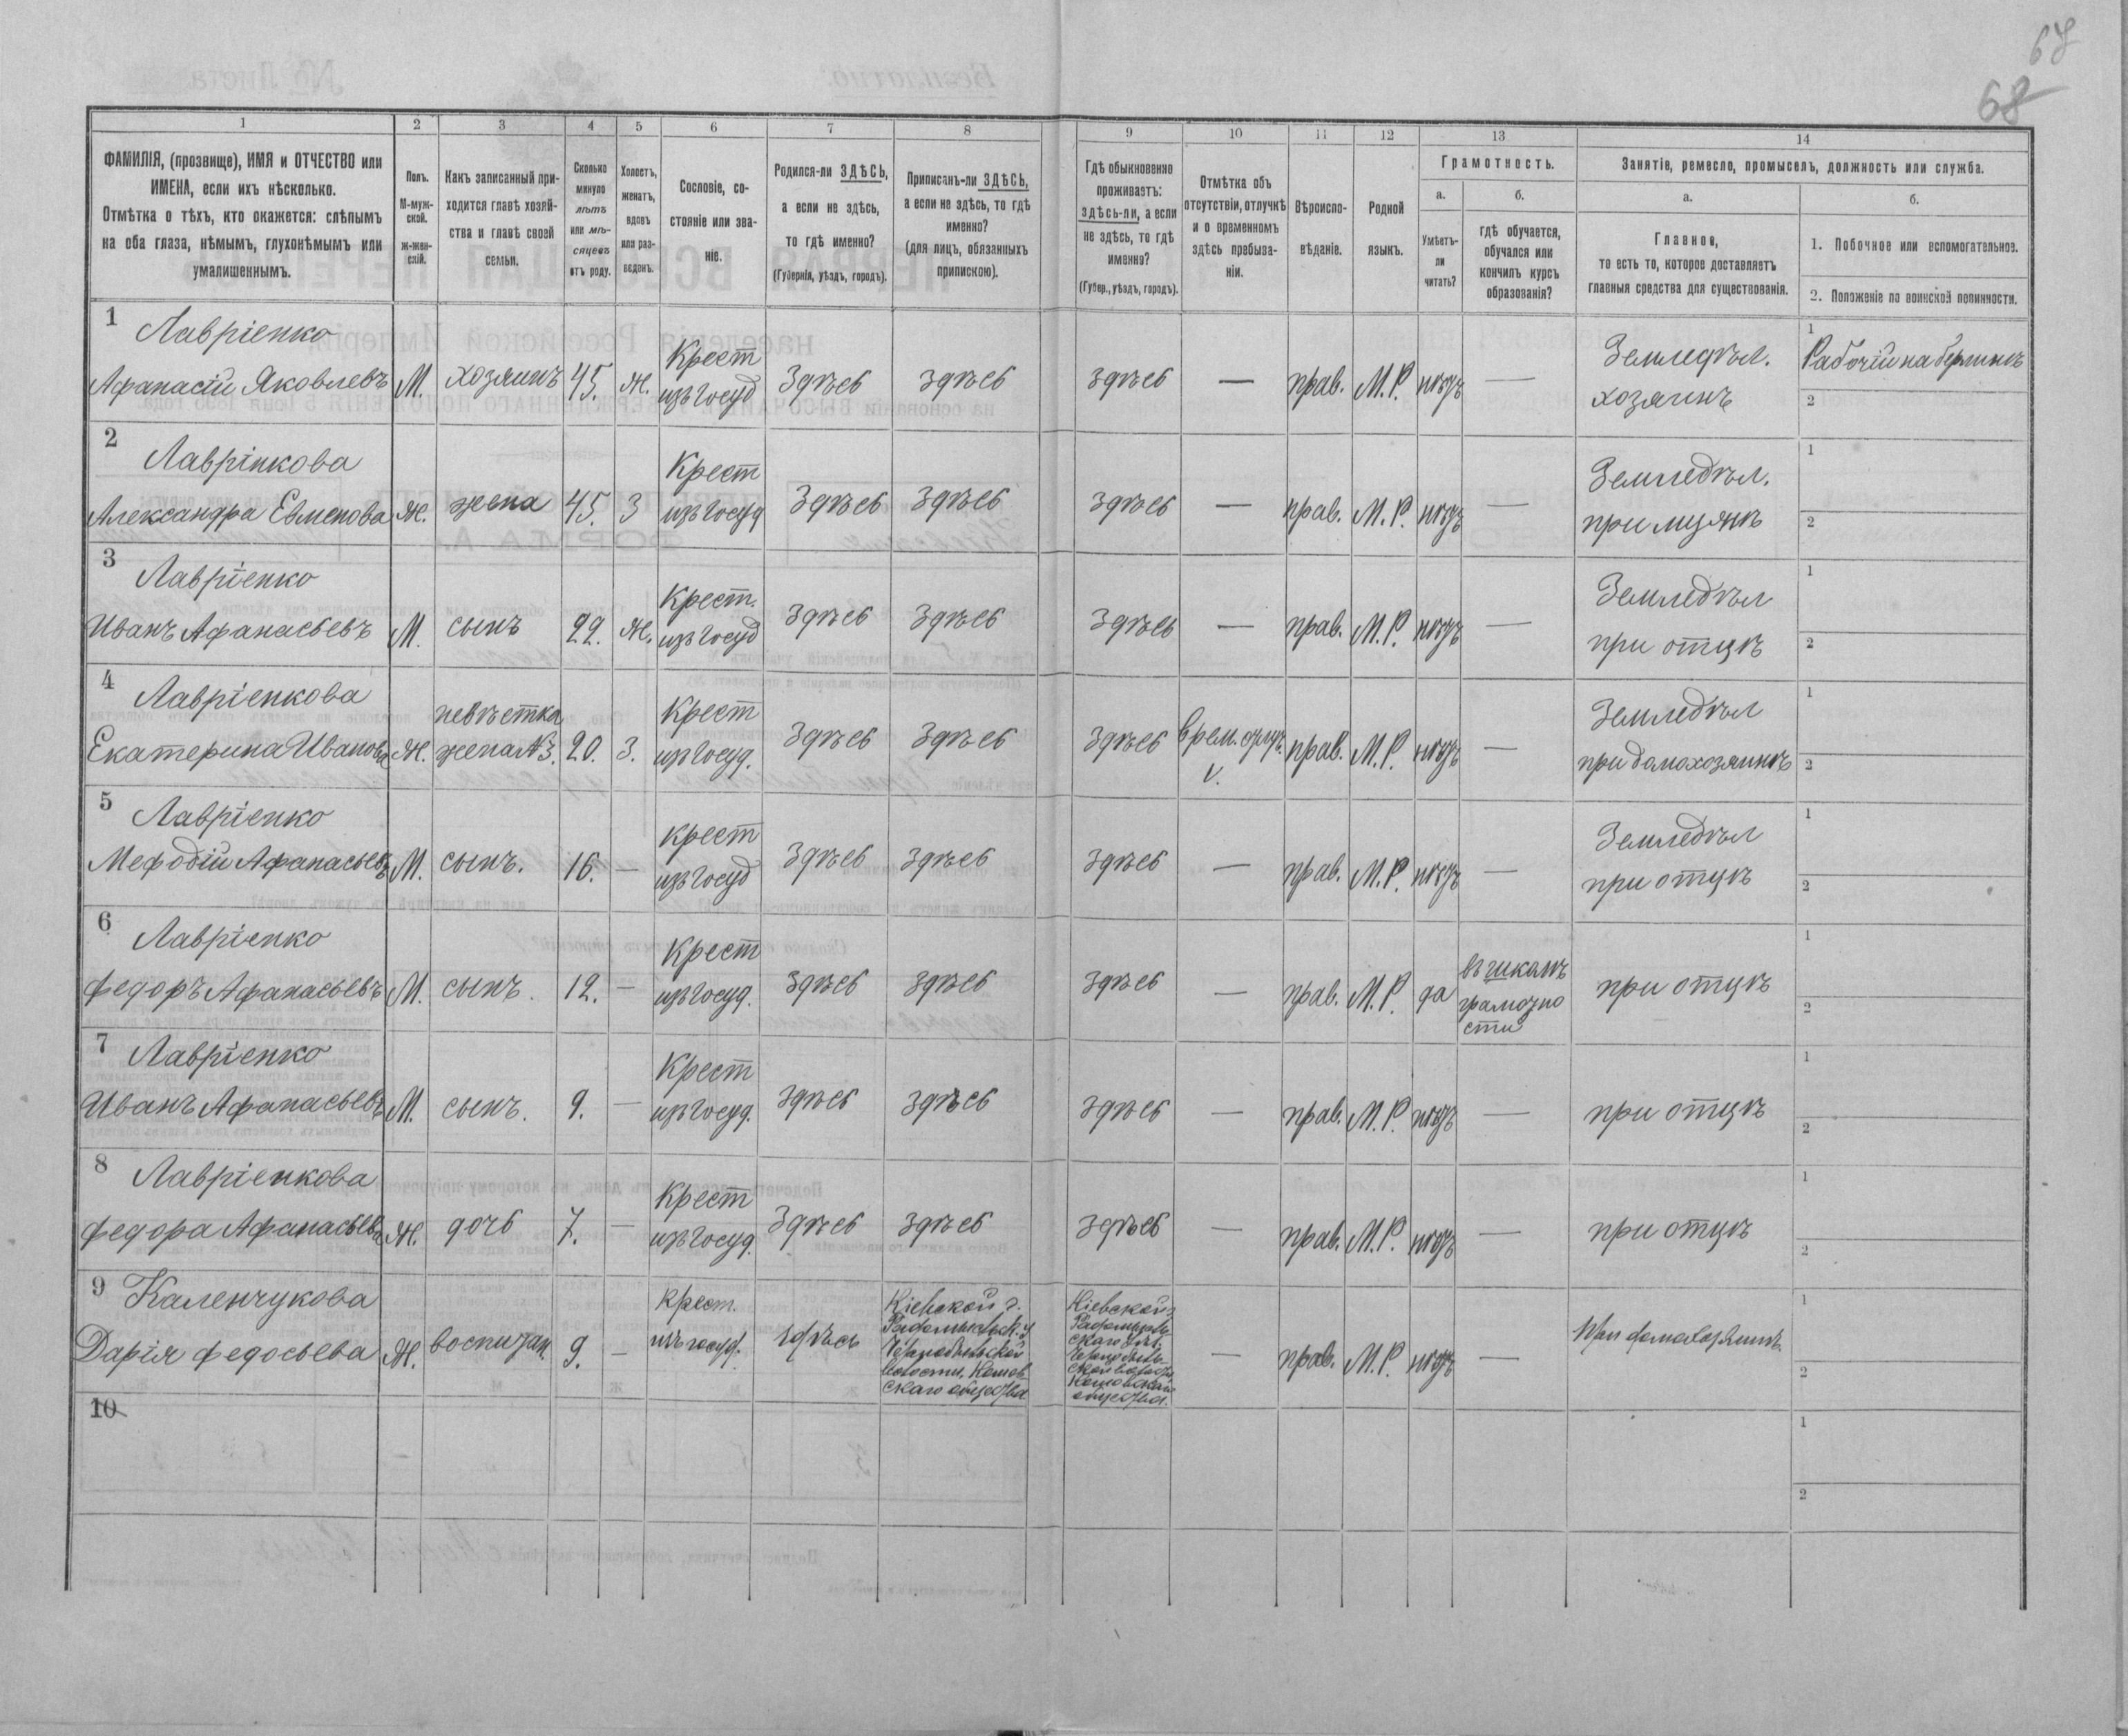 67
68
1 2 3 4 5 6 7 8 9 10 11 12 13 14
ФАМИЛІЯ, (прозвище), ИМЯ и ОТЧЕСТВО или
ИМЕНА, если ихъ нѣсколько.
Отмѣтка о тѣхъ, кто окажется: слѣпымъ
на оба глаза, нѣмымъ, глухонѣмымъ или
умалишеннымъ.
Полъ.
М-муж-
ской.
ж-жен-
скій.
Какъ записанный при-
ходится главѣ хозяй-
ства и главѣ своей
семьи.
Сколько
минуло
лѣтъ
или мѣ-
сяцевъ
отъ роду.
Холостъ,
женатъ,
вдовъ
или раз-
веденъ.
Сословіе, со-
стояніе или зва-
ніе.
Родился-ли ЗДѢСЬ,
а если не здѣсь,
то гдѣ именно?
(Губернія, уѣздъ, городъ).
Приписанъ-ли ЗДѢСЬ,
а если не здѣсь, то гдѣ
именно?
(для лицъ, обязанныхъ
припискою).
Гдѣ обыкновенно
проживаетъ:
здѣсь-ли, а если
не здѣсь, то гдѣ
именно?
(Губер., уѣздъ, городъ).
Отмѣтка объ
отсутствіи, отлучкѣ
и о временномъ
здѣсь пребыва-
ніи.
Вѣроиспо-
вѣданіе.
Родной
языкъ.
Грамотность.
а.
Умѣетъ-
ли
читать?
б.
гдѣ обучается,
обучался или
кончилъ курсъ
образованія?
Занятіе, ремесло, промыселъ, должность или служба.
а.
Главное,
то есть то, которое доставляетъ
главныя средства для существованія.
б.
1. Побочное или вспомогательное.
2. Положеніе по воинской повинности.
1 Лавріенко Крест Земледѣл. 1 Рабочій на берлинѣ
Афанасій Яковлевъ М. хозяинъ 45. ж. изъ госуд здѣсь здѣсь здѣсь — прав. М.Р. нѣтъ — хозяинъ 2
2 Лаврінкова Крест Земледѣл. 1
Александра Евменова Ж. жена 45. З изъ госуд здѣсь здѣсь здѣсь — прав. М.Р. нѣтъ — при мужѣ 2
3 Лавріенко Крест. Земледѣл 1
Иванъ Афанасьевъ М. сынъ 22. ж. изъ госуд здѣсь здѣсь здѣсь — прав. М.Р. нѣтъ — при отцѣ 2
4 Лавріенкова невѣстка Крест Земледѣл 1
Екатерина Иванова Ж. жена N3. 20. З. изъ госуд. здѣсь здѣсь здѣсь врем. отл. прав. М.Р. нѣтъ — при домохозяинѣ 2
V.
5 Лавріенко крест Земледѣл 1
Мефодій Афанасьевъ М. сынъ. 16. — изъ госуд здѣсь здѣсь здѣсь — прав. М.Р. нѣтъ — при отцѣ 2
6 Лавріенко Крест въ школѣ 1
Федоръ Афанасьевъ М. сынъ. 12. — изъ госуд. здѣсь здѣсь здѣсь — прав. М.Р. да грамотно при отцѣ 2
сти
7 Лавріенко Крест 1
Иванъ Афанасьевъ М. сынъ. 9. — изъ госуд. здѣсь здѣсь здѣсь — прав. М.Р. нѣтъ — при отцѣ 2
8 Лавріенкова Крест 1
Федора Афанасьева Ж. дочь 7. — изъ госуд. здѣсь здѣсь здѣсь — прав. М.Р. нѣтъ — при отцѣ 2
9 Каленчукова крест. 1
Дарія Федосьева Ж. воспитан. 9. — изъ госуд. здѣсь
Кіевской г.
Радомысльск. у
Чернобыльской
волости,
скаго общества
Кіевской г
Радомысль
скаго уѣз.
Чернобыль
ской волости
общества.
— прав. М.Р. нѣтъ — При домохозяинѣ. 2
10 1
2